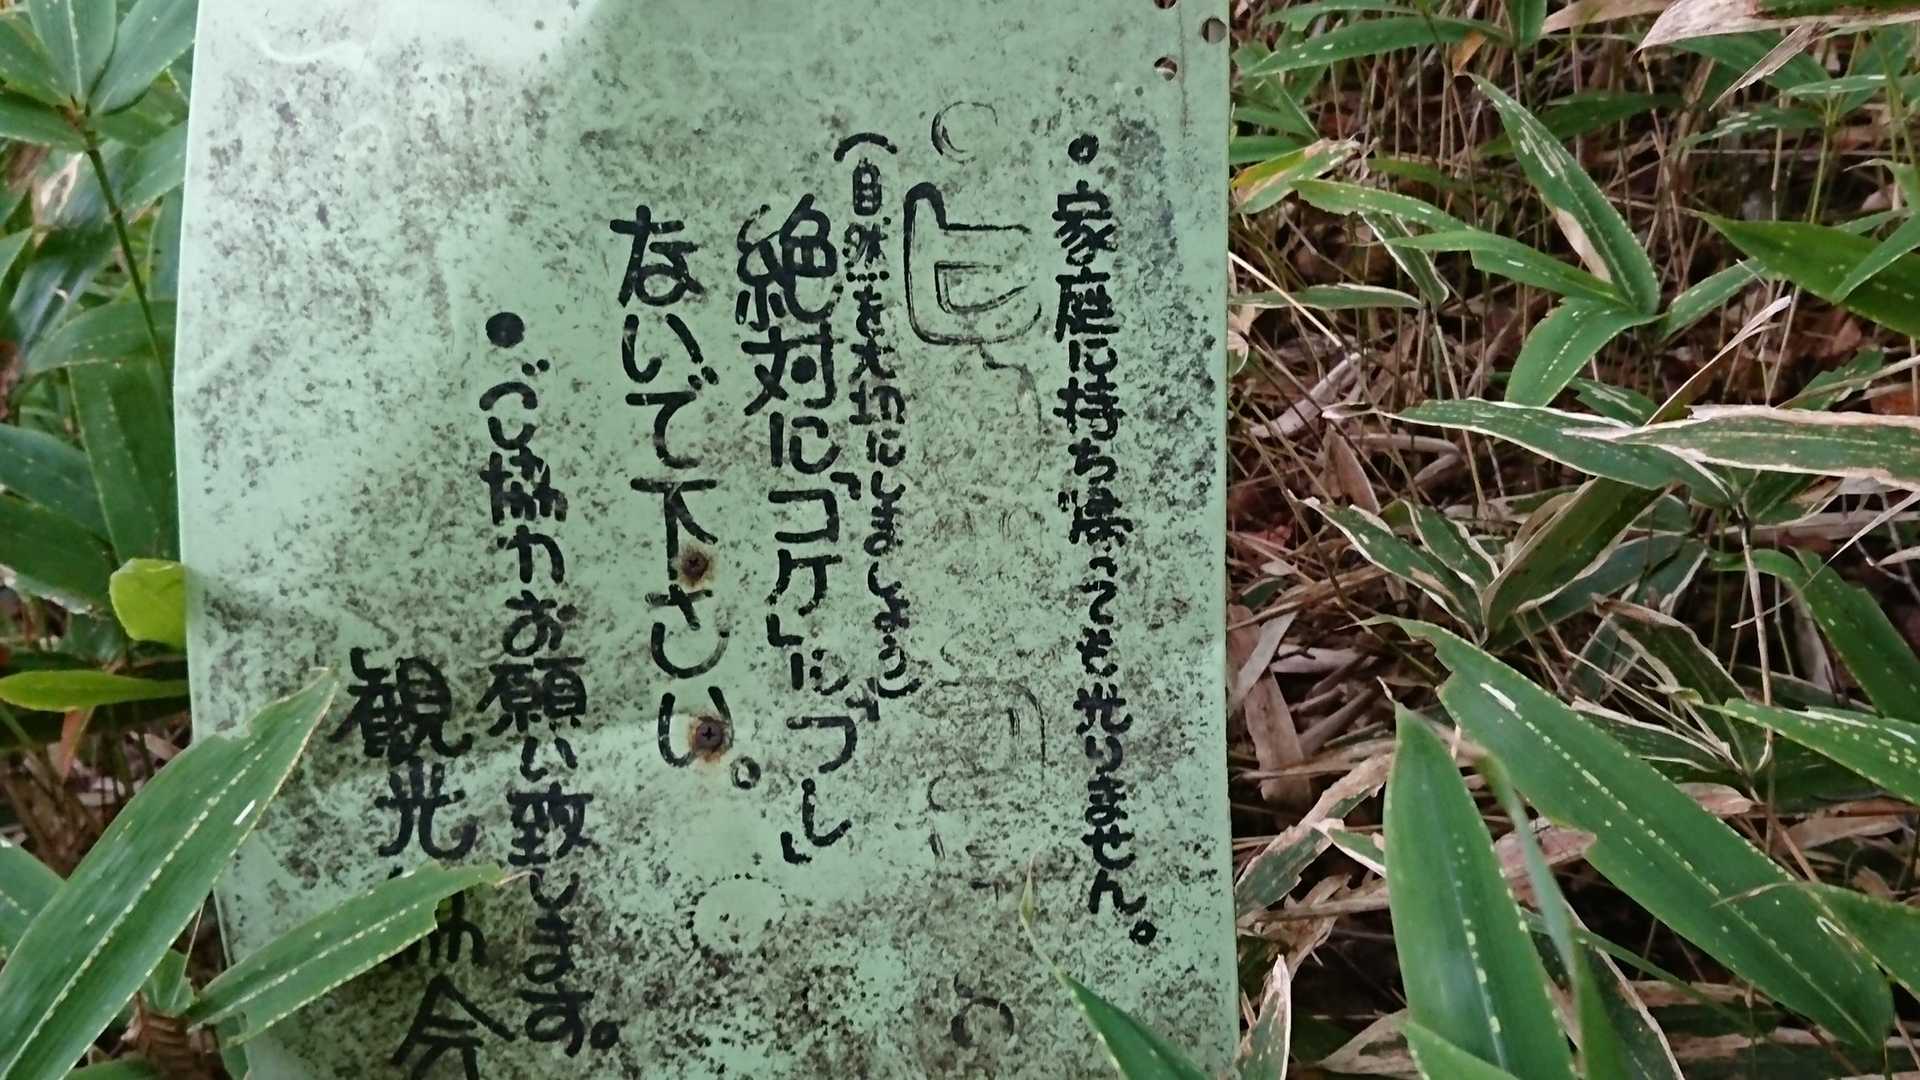 。家庭に持ち帰っても光りません。
(自然を大切にしましょう)
絶対に「コケ」に「フレ」
ないで下さい。
・ご協力お願い致します。
観光協会